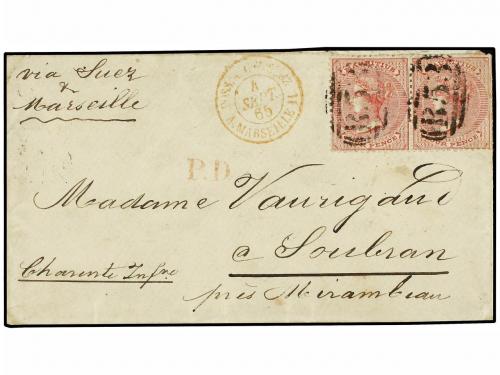 via Suez
&
Marseille
4
SEPT.
65
A MARSEILLE
B53
B53
PENCE
PENCE
P.D.
Madame Vaurigaud
a Soubran
Charente Infre
près Mirambeau